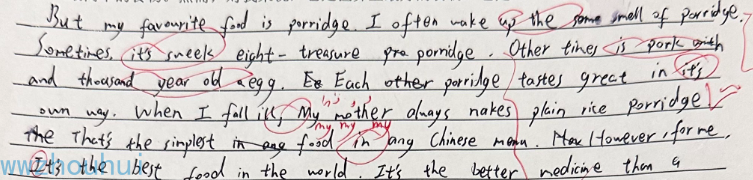 But my favourite food is porridge. I often wake up the some smell of porridge.
Sometines, it's sweek eight-treasure pro porridge. Other tines is pork with
and thousand year old egg. Ea Each other porridge tastes great in it's
own way. When I fall ill, My mother always nakes plain rice porridge
my my my
The That's the simplest in any food in any Chinese menu. However, for me,
It's the best food in the world. It's the better medicine than a